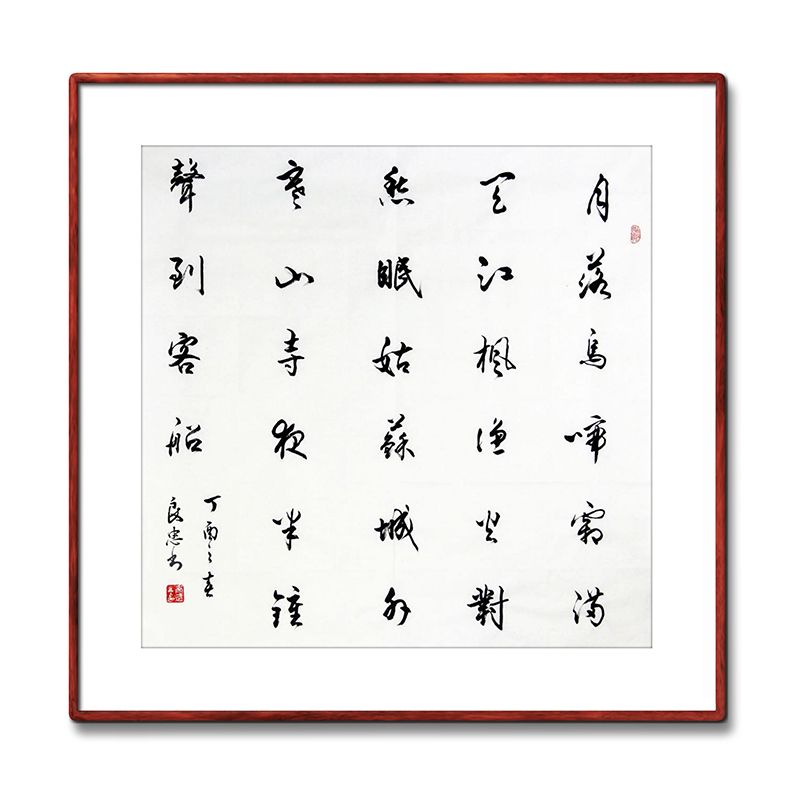 月落烏啼霜滿
天江楓漁火對
愁眠姑蘇城外
寒山寺夜半鐘
聲到客船
丁酉之春
良忠書